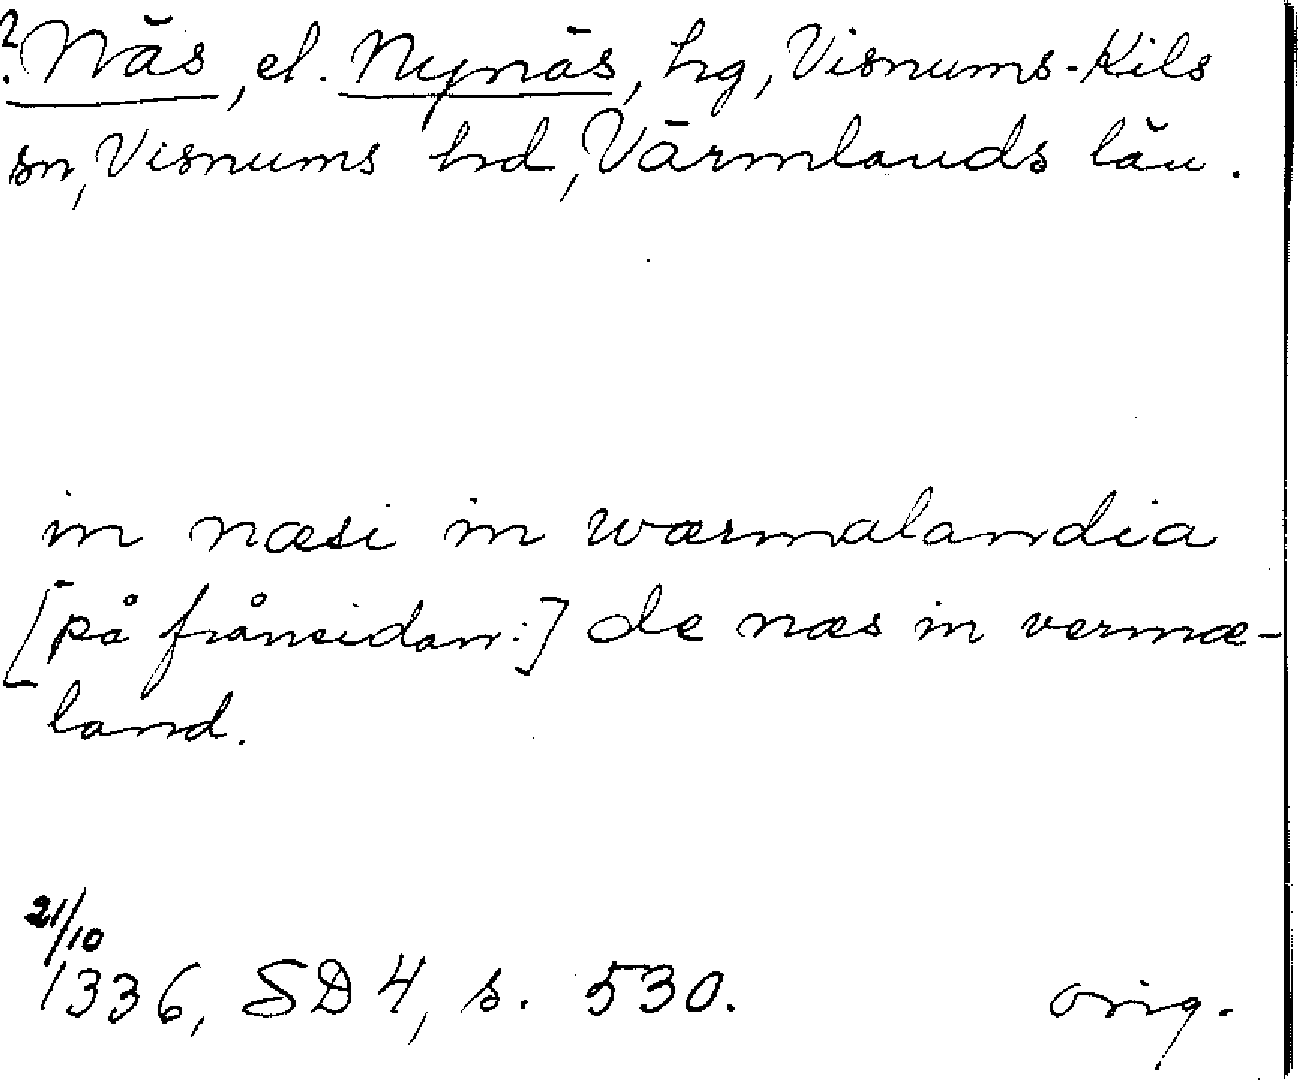 ? Näs, el. Nynäs, hg, Visnums-Kils
sn, Visnums hd, Värmlands län.
in næsi in wærmalandia
[på frånsidan:] de næs in vermæ-
land.
21/10
1336, SD 4, s. 530. orig.